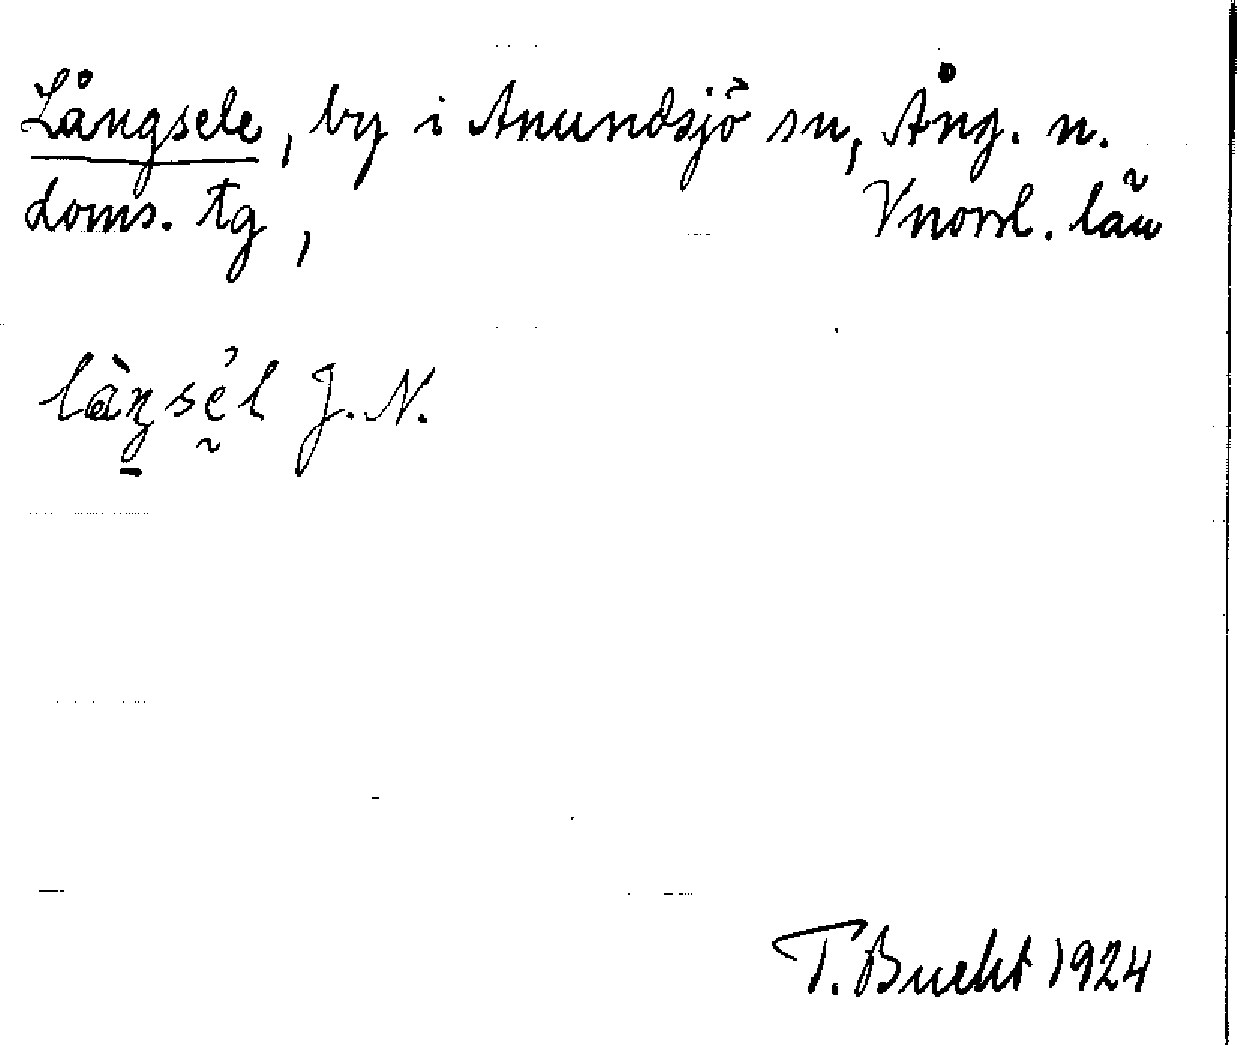 Långsele, by i Anundsjö sn, Ång. n.
doms. tg, Vnorrl. län
J. N.
T. Bucht 1924